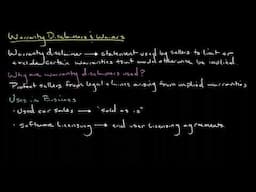 Warranty Disclaimers & Waivers
Warranty disclaimer → statement used by sellers to limit or
exclude certain warranties that would otherwise be implied
Why are warranty disclaimers used?
Protect sellers from legal claims arising from implied warranties
Uses in Business
· Used car sales → "sold as is"
· Software licensing → end user licensing agreements